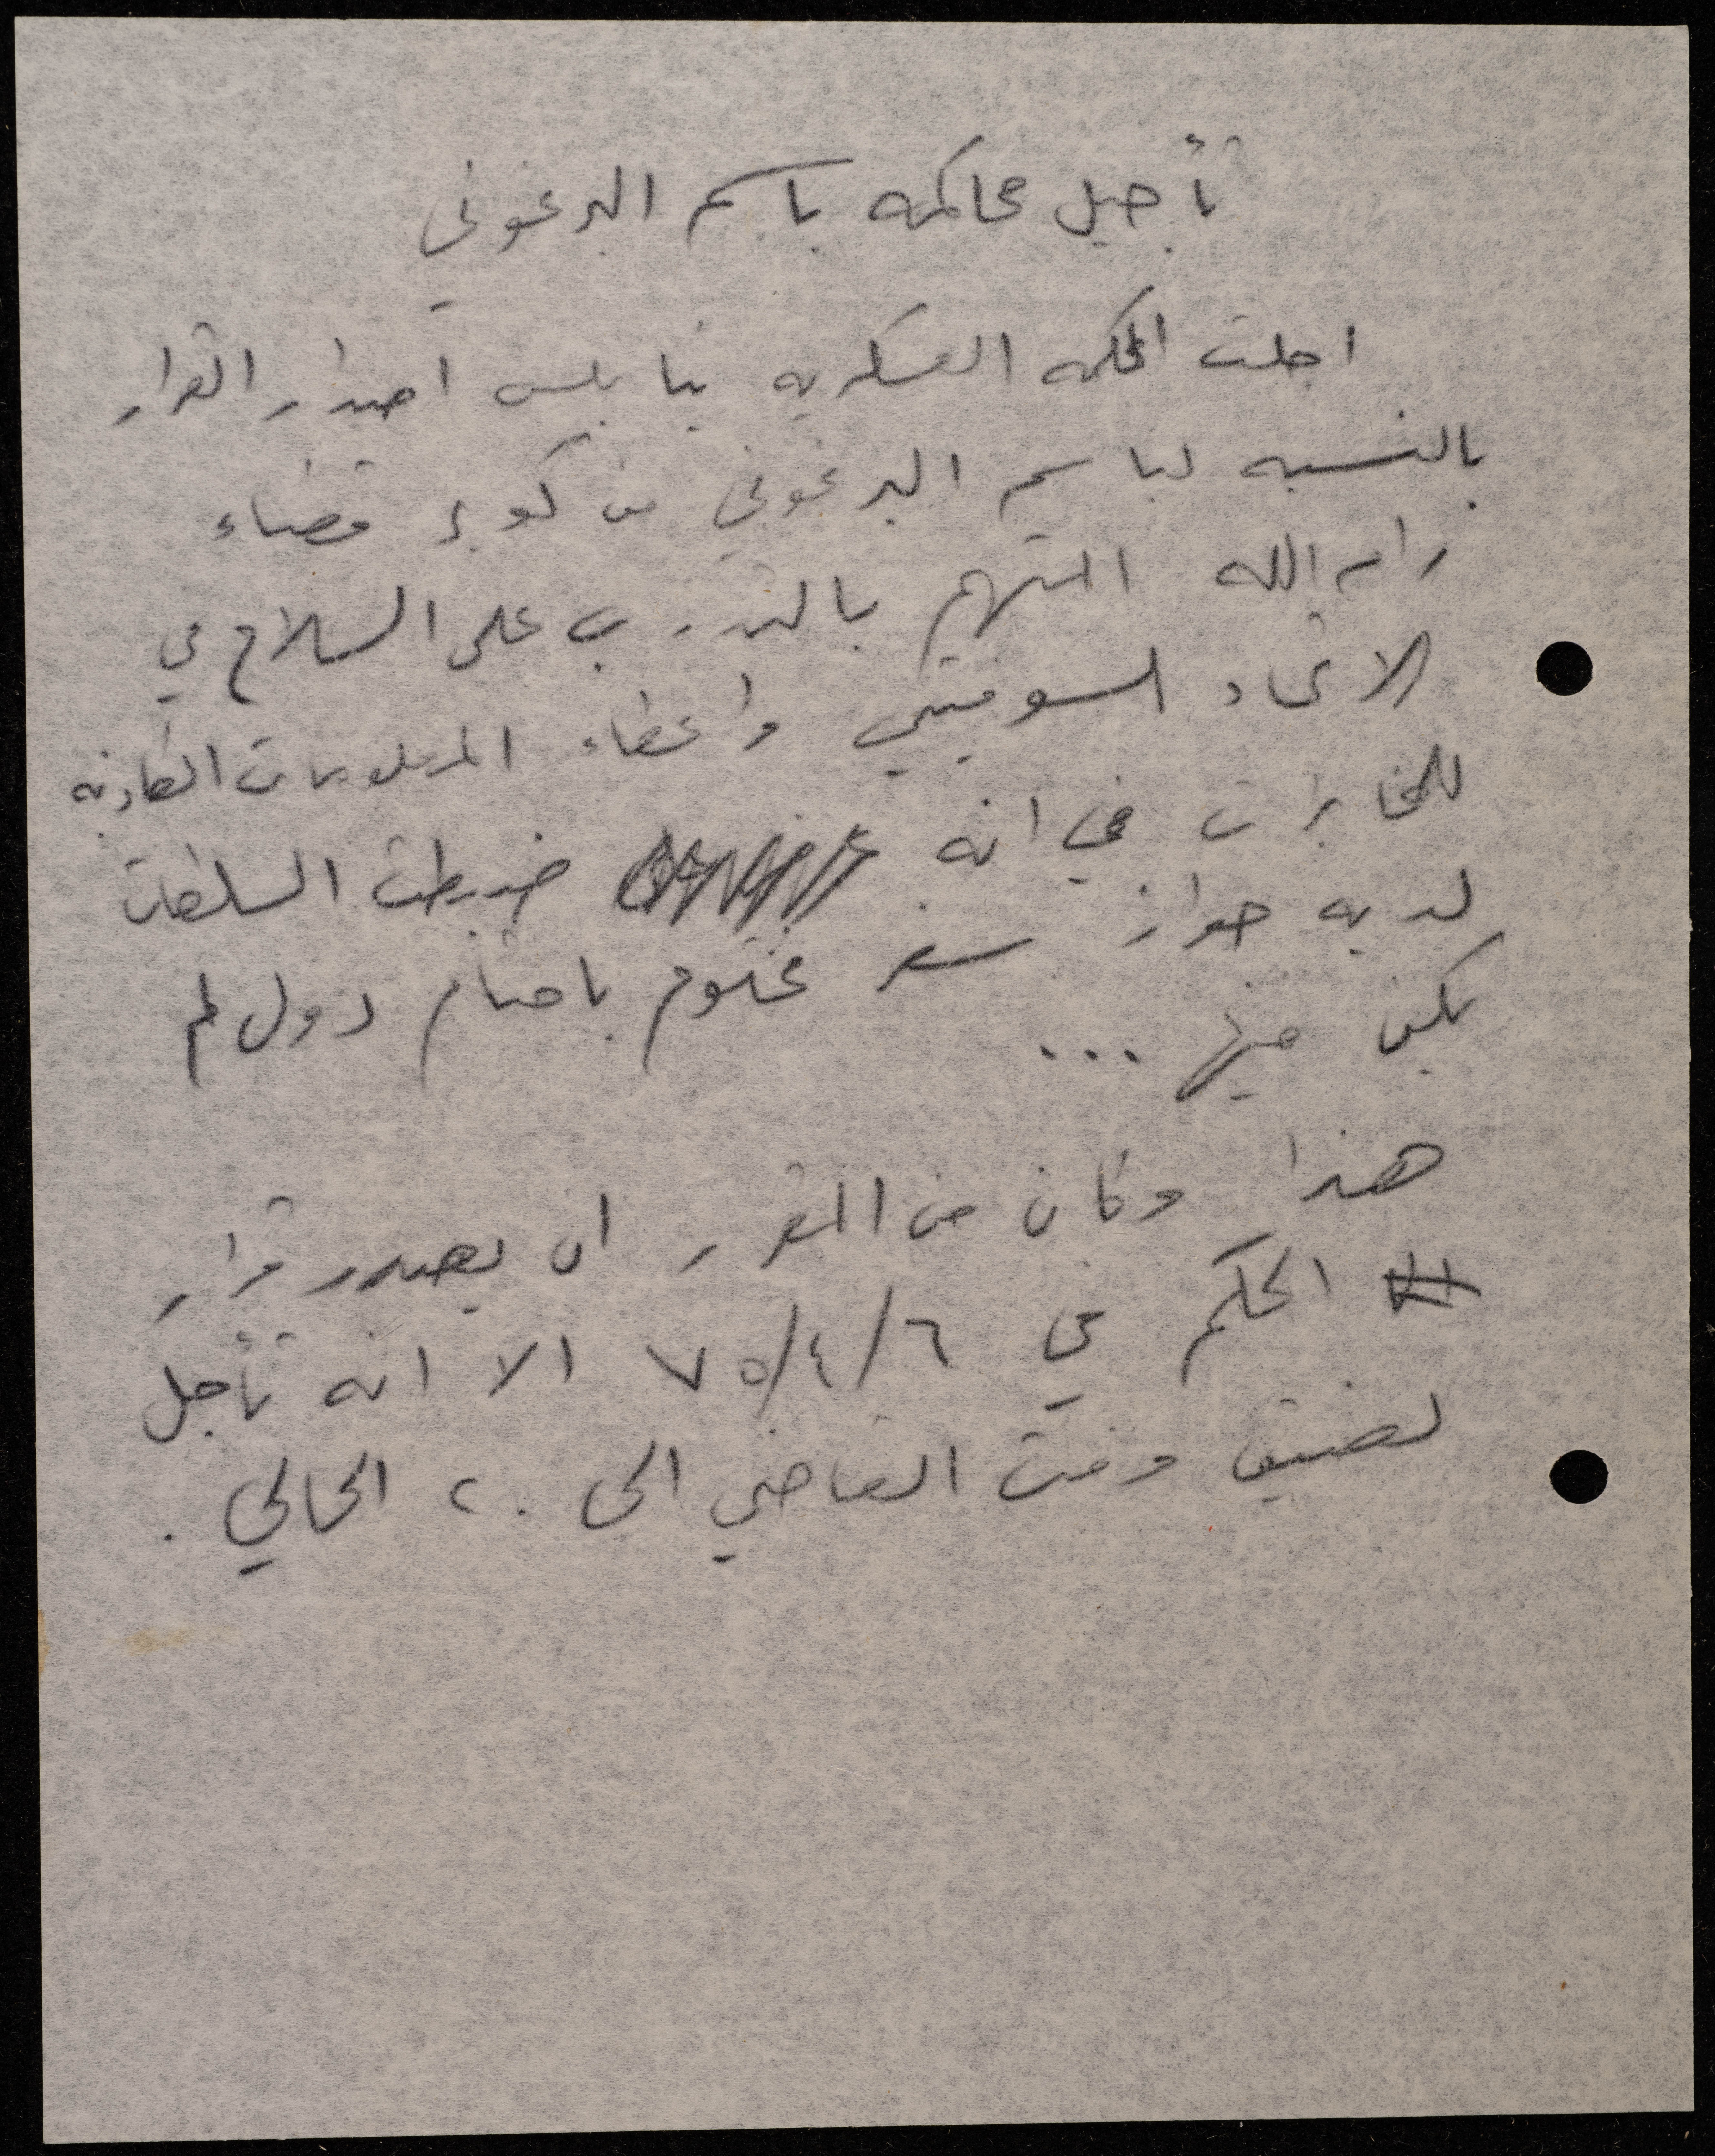 تأجيل محاكمه باسم البرغوثي
اجلت المحكمه العسكريه بنابلس اصدار القرار
بالنسبه لباسم البرغوثي من كوبر قضاء
رام الله المتهم بالتدرب على السلاح في
الاتحاد السوفيتي واعطاء المعلومات الكاذبه
للمخابرات في انه ضبطت السلطات
لديه جواز سفر مختوم باختام دول لم
يكن فيها ...
هذا وكان من المقرر ان يصدر قرار
الحكم في ٧٥/٤/٦ الا انه تأجل
لضيق وقت القاضي الى ٢٠ الحالي .